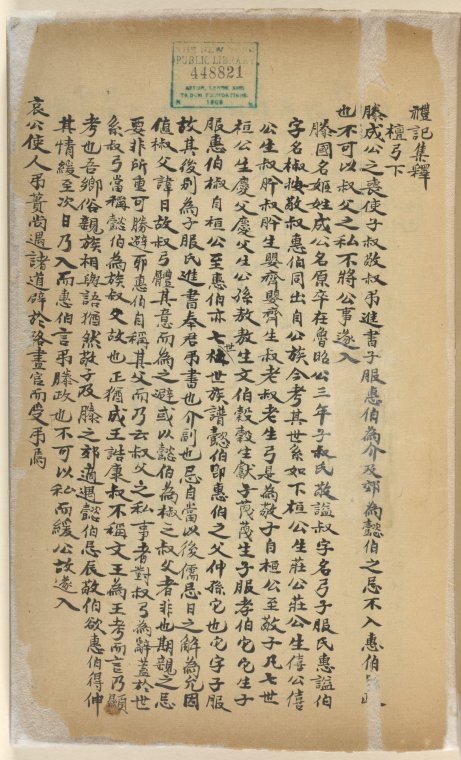 THE NEW YORK
PUBLIC LIBRARY
448821
ASTOR, LENOX AND
TILDEN FOUNDATIONS.
禮記集釋
檀弓下
滕成公之喪使子叔敬叔弔進書子服惠伯為介及郊為懿伯之忌不入惠伯曰政
也不可以叔父之私不將公事遂入
滕國名姬姓成公名原卒在魯昭公三年子叔氏敬謚叔字名弓子服氏惠謚伯
字名椒按敬叔惠伯同出自公族今考其世系如下桓公生莊公莊公生僖公僖
公生叔肸叔肸生嬰齊嬰齊生叔老叔老生弓是為敬子自桓公至敬子凡七世
桓公生慶父慶父生公孫敖敖生文伯穀穀生獻子蔑蔑生子服孝伯它它生子
服惠伯椒自桓公至惠伯亦七世世族譜懿伯即惠伯之父仲孫它也它字子服
故其後別為子服氏進書奉君弔書也介副也忌自當以後儒忌日之解為允因
值椒父諱日故叔弓體其意而為之避或以懿伯為椒之叔父者非也期親之忌
要非所重可勝避耶惠伯自稱其父而乃云叔父之私事者對叔弓為辭蓋於世
系叔弓當稱懿伯為族叔父故也正猶成王誥康叔不稱文王為王考而言乃顯
考也吾鄉俗親族相與語猶然敬子及滕之郊適遇懿伯忌辰敬伯欲惠伯得伸
其情緩至次日乃入而惠伯言弔滕政也不可以私而緩公故遂入
哀公使人弔蕢尚遇諸道辟於路畫宮而受弔焉